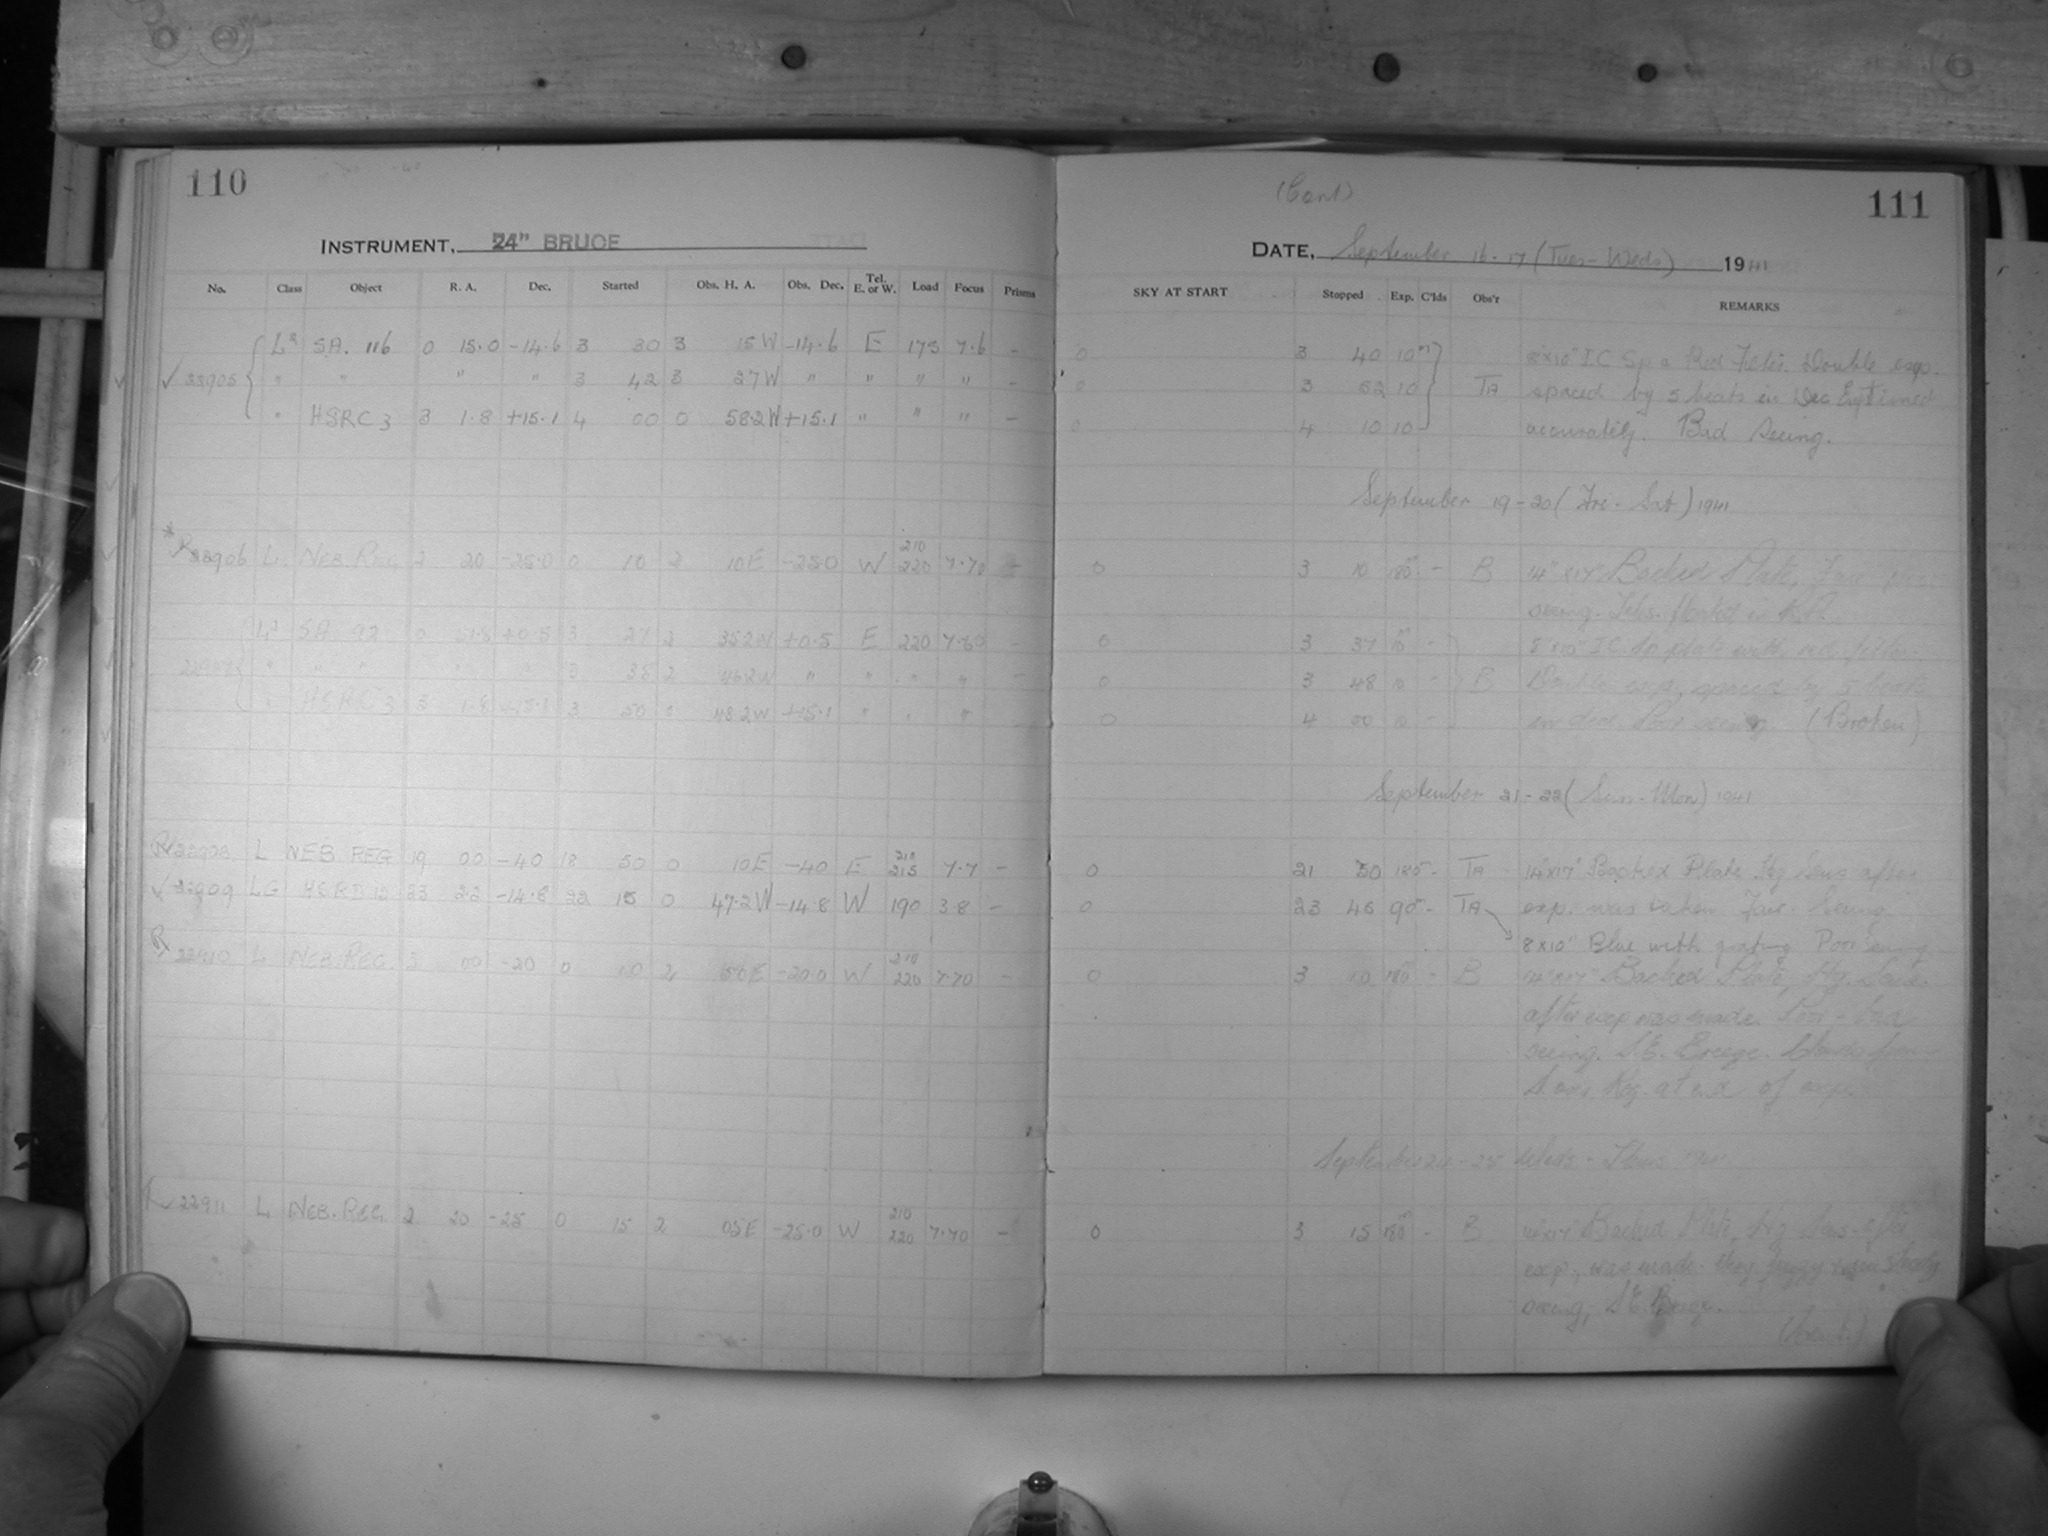 110
INSTRUMENT, 24" BRUCE
No. Class Object R. A. Dec. Started Obs. H. A. Obs. Dec. Tel. E. or W. Load Focus Prisms
L S.A. 116 0 15.0 -14.6 3 30 3 15 W -14.6 E 175 7.6 -
✓ 22905 " " " " 3 42 3 27 W " " " " -
" HSRC 3 3 1.8 +15.1 4 00 0 58.2 W +15.1 " " " -
22906 L NEB. REG 2 20 -25.0 0 10 2 10 E -25.0 W 210 220 7.70 -
S.A. 92 0 +0.5 3 27 2 35.2 W +0.5 E 220 7.60 -
" " " " 3 38 2 46.2 W " " " " -
HSRC 3 3 1.8 +15.1 3 50 0 48.2 W +15.1 " " " -
L NEB. REG 19 00 -40 18 50 0 10 E -40 E 210 215 7.7 -
✓ 22909 LG 23 2.2 -14.8 22 15 0 47.2 W -14.8 W 190 3.8 -
22910 L NEB. REG. 3 00 -20 0 10 2 E -20.0 W 210 220 7.70 -
22911 L NEB. REG. 2 20 -25 0 15 2 05 E -25.0 W 210 220 7.70 -
(Cont)
111
DATE, September 16-17 (Tues-Weds) 1941
SKY AT START Stopped Exp. C'lds Obs'r REMARKS
0 3 40 10 8"x10" I.C. Sp. a Red Filter. Double exp.
0 3 52 10 TA spaced by 5 beats in Dec
0 4 10 10 accurately. Bad Seeing.
September 19-20 (Fri-Sat) 1941
0 3 10 180 - B 14"x17" Backed Plate, Fair
seeing.
0 3 37 10 - 8"x10" I.C. Sp plate with red filter
0 3 48 10 - B Double exp, spaced by 5 beats
0 4 00 10 - in dec. Poor seeing. (Broken)
September 21-22 (Sun-Mon) 1941
0 21 50 180 - TA 14"x17" Backed Plate Hg. Sens after
0 23 45 90 - TA exp. was taken. Fair Seeing
8x10" Blue with grating Poor Seeing
0 3 10 180 - B 14"x17" Backed Plate, Hg. Sens.
after exp was made. Poor - bad
seeing. S.E. Breeze.
at end of exp.
September 24-25 Weds-Thurs
0 3 15 180 - B 14"x17" Backed Plate, Hg Sens. after
exp, was made. Very fuzzy
seeing, S.E. Breeze.
(Cont.)